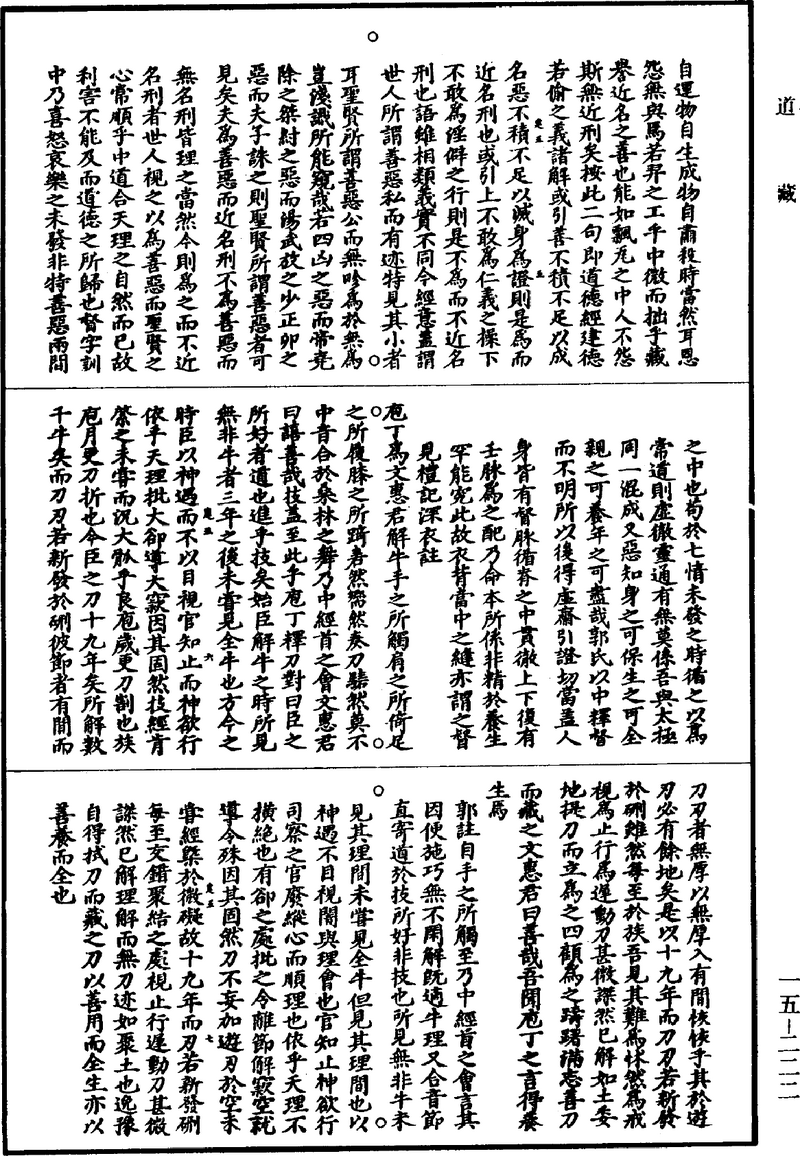 道藏
自運物自生成物自肅殺時當然耳恩
怨無與焉若羿之工乎中微而拙乎藏
譽近名之善也能如飄瓦之中人不怨
斯無近刑矣按此二句即道德經建德
若偷之義諸解或引善不積不足以成
名惡不積不足以滅身為證則是為而
近名刑也或引上不敢為仁義之操下
不敢為淫僻之行則是不為而不近名
刑也語雖相類義實不同今經意蓋謂
世人所謂善惡私而有迹特見其小者
耳聖賢所謂善惡公而無畛為於無為
豈淺識所能窺哉若四凶之惡而帝堯
除之桀紂之惡而湯武放之少正卯之
惡而夫子誅之則聖賢所謂善惡者可
見矣夫為善惡而近名刑不為善惡而
無名刑皆理之當然今則為之而不近
名刑者世人視之以為善惡而聖賢之
心常順乎中道合天理之自然而已故
利害不能及而道德之所歸也督字訓
中乃喜怒哀樂之未發非特善惡兩間
之中也苟於七情未發之時循之以為
常道則虛徹靈通有無莫係吾與太極
同一混成又惡知身之可保生之可全
親之可養年之可盡哉郭氏以中釋督
而不明所以後得虛齋引證切當蓋人
身皆有督脉循脊之中貫徹上下復有
壬脉為之配乃命本所係非精於養生
罕能究此故衣背當中之縫亦謂之督
見禮記深衣註
庖丁為文惠君解牛手之所觸肩之所倚足
之所履膝之所踦砉然嚮然奏刀騞然莫不
中音合於桑林之舞乃中經首之會文惠君
曰譆善哉技蓋至此乎庖丁釋刀對曰臣之
所好者道也進乎技矣始臣解牛之時所見
無非牛者三年之後未嘗見全牛也方今之
時臣以神遇而不以目視官知止而神欲行
依乎天理批大卻導大窾因其固然技經肯
綮之未嘗而況大軱乎良庖歲更刀割也族
庖月更刀折也今臣之刀十九年矣所解數
千牛矣而刀刃若新發於硎彼節者有間而
刀刃者無厚以無厚入有間恢恢乎其於遊
刃必有餘地矣是以十九年而刀刃若新發
於硎雖然每至於族吾見其難為怵然為戒
視為止行為遲動刀甚微謋然已解如土委
地提刀而立為之四顧為之躊躇滿志善刀
而藏之文惠君曰善哉吾聞庖丁之言得養
生焉
郭註自手之所觸至乃中經首之會言其
因便施巧無不閑解既適牛理又合音節
直寄道於技所好非技也所見無非牛未
見其理間未嘗見全牛但見其理間也以
神遇不目視闇與理會也官知止神欲行
司察之官廢縱心而順理也依乎天理不
橫絶也有卻之處批之令離節解窾空就
導令殊因其固然刀不妄加遊刃於空未
嘗經槩於微礙故十九年而刃若新發硎
每至交錯聚結之處視止行遲動刀甚微
謋然已解理解而無刀迹如聚土也逸豫
自得拭刀而藏之刀以善用而全生亦以
善養而全也
一五-二二二